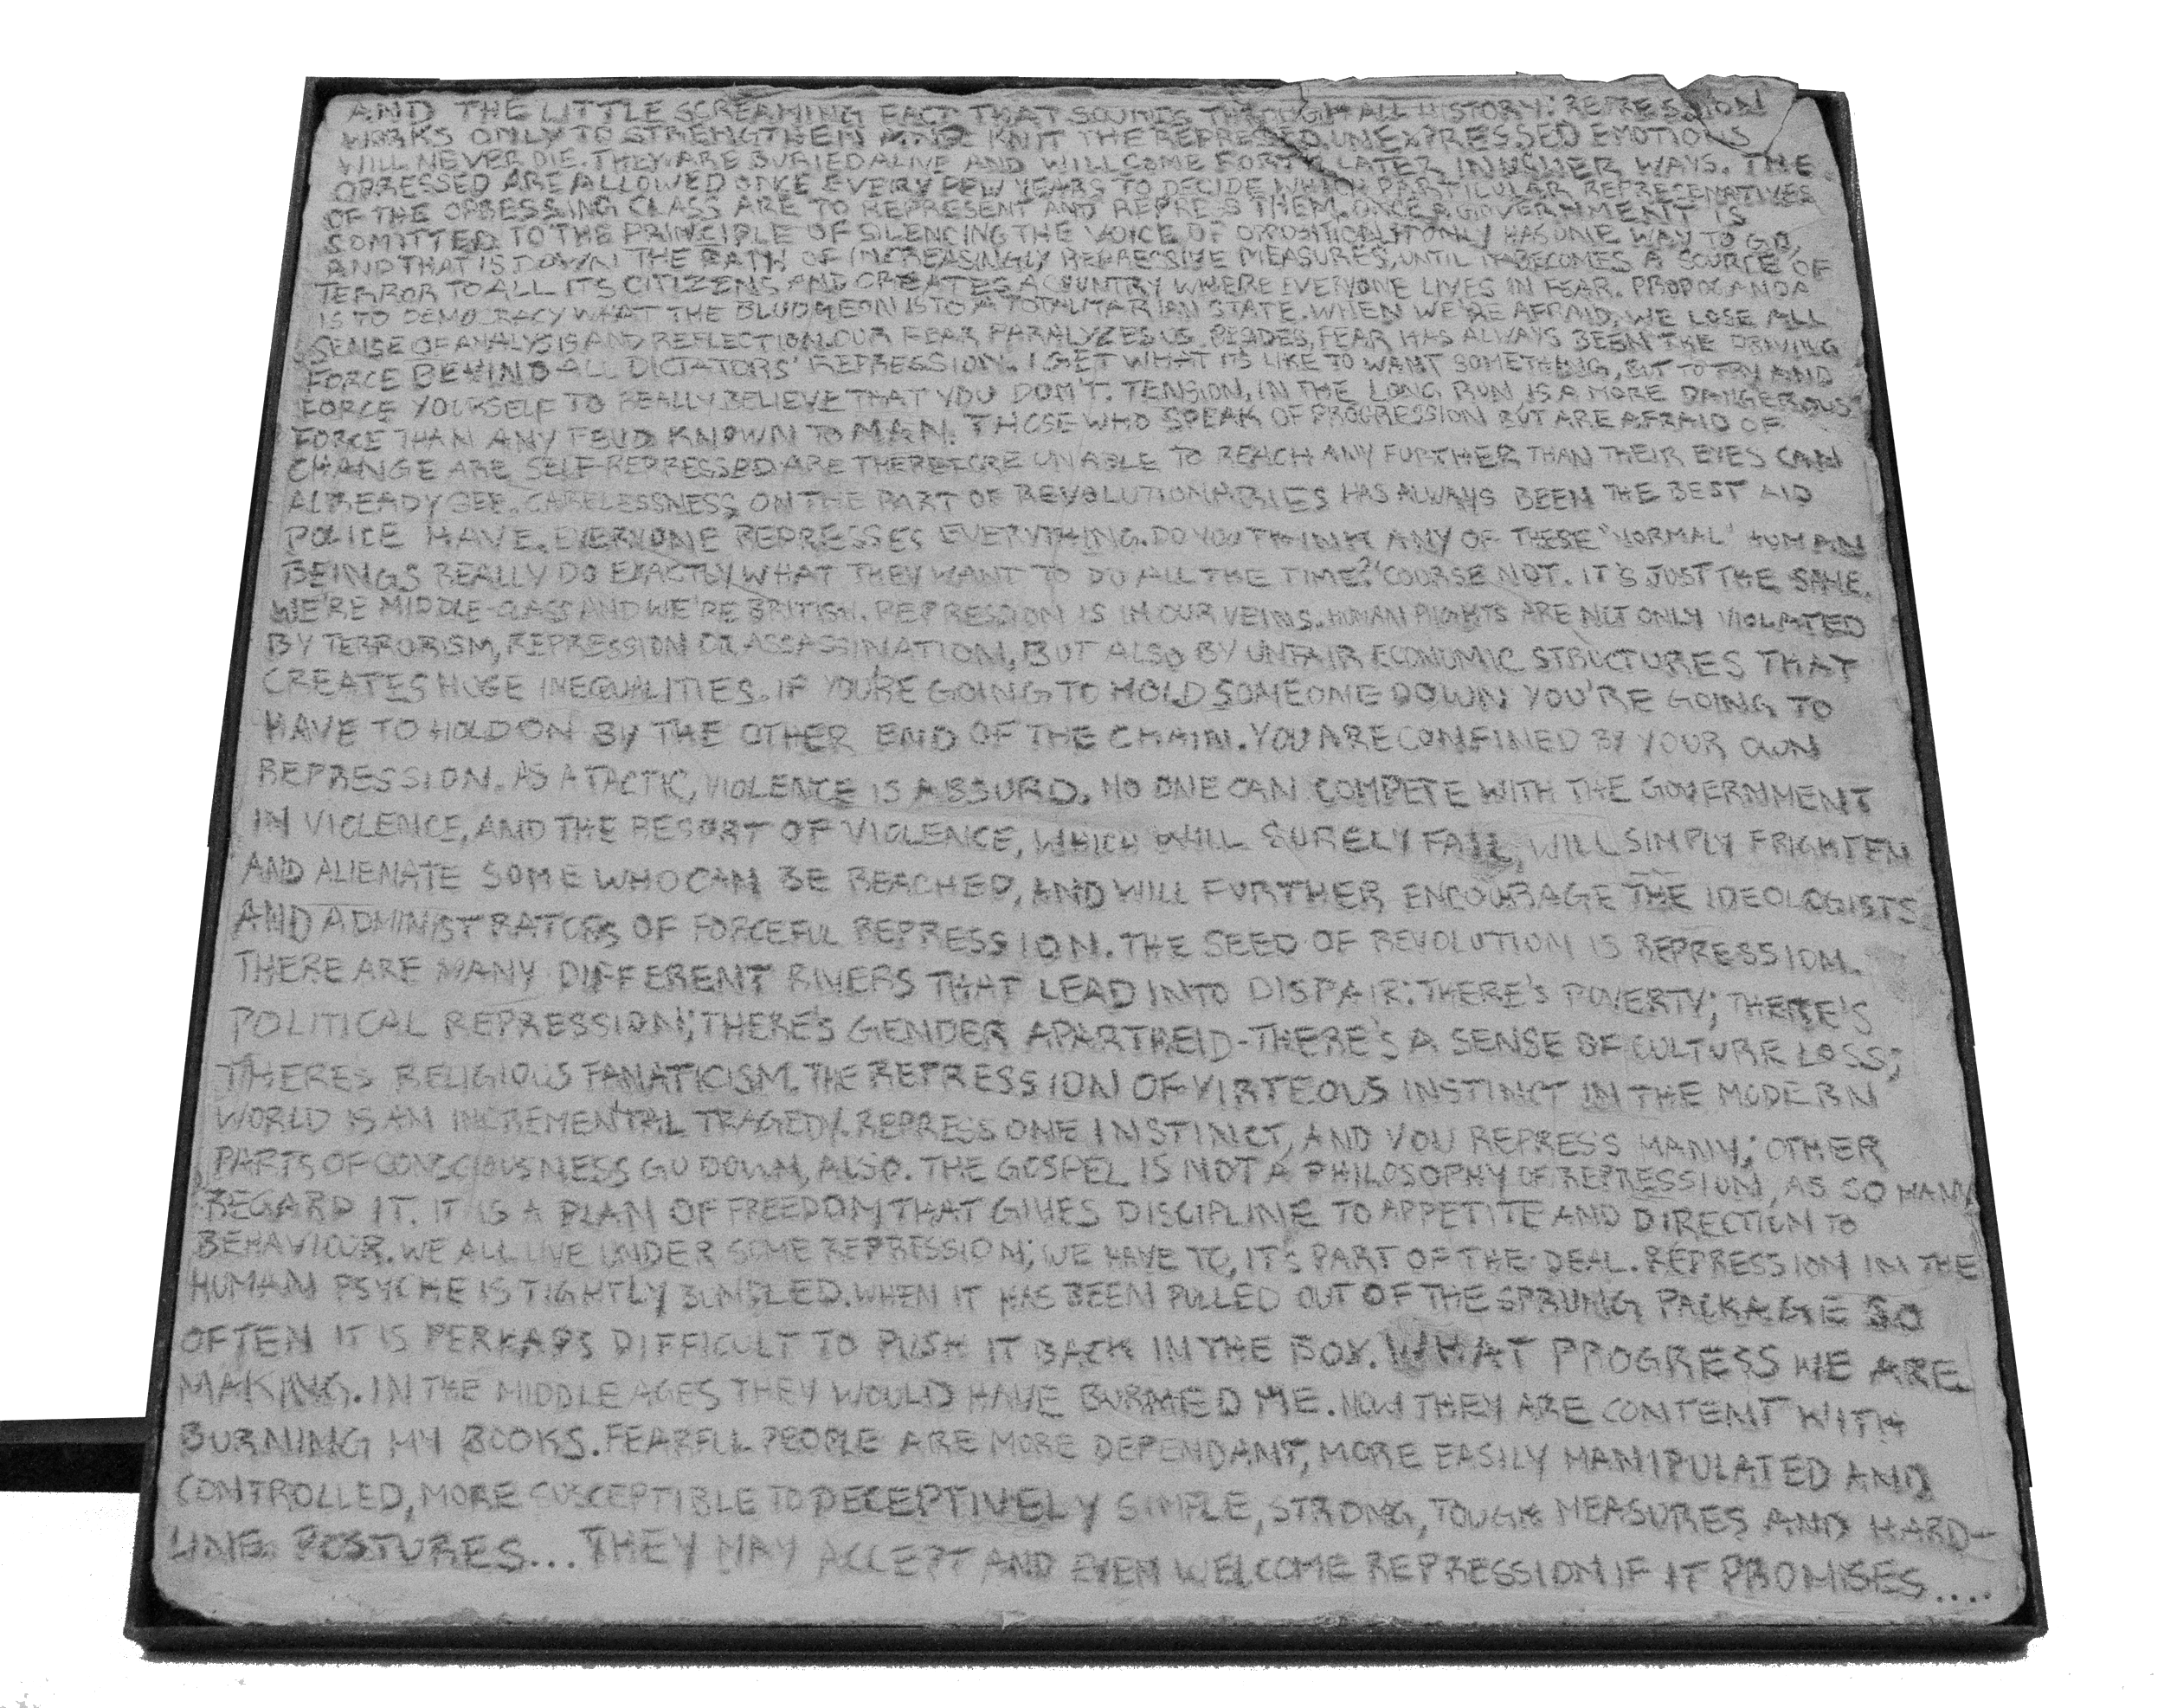 AND THE LITTLE SCREAMING FACT THAT SOUNDS THROUGH ALL HISTORY: REPRESSION
WORKS ONLY TO STRENGTHEN AND KNIT THE REPRESSED. UNEXPRESSED EMOTIONS
WILL NEVER DIE. THEY ARE BURIED ALIVE AND WILL COME FORTH LATER IN UGLIER WAYS. THE
OPRESSED ARE ALLOWED ONCE EVERY FEW YEARS TO DECIDE WHICH PARTICULAR REPRESENATIVES
OF THE OPRESSING CLASS ARE TO REPRESENT AND REPRESS THEM. ONCE A GOVERNMENT IS
COMITTED TO THE PRINCIPLE OF SILENCING THE VOICE OF OPPOSITION, IT ONLY HAS ONE WAY TO GO,
AND THAT IS DOWN THE PATH OF INCREASINGLY REPRESSIVE MEASURES, UNTIL IT BECOMES A SOURCE OF
TERROR TO ALL ITS CITIZENS AND CREATES A COUNTRY WHERE EVERYONE LIVES IN FEAR. PROPOGANDA
IS TO DEMOCRACY WHAT THE BLUDGEON IS TO A TOTALITARIAN STATE. WHEN WE'RE AFRAID, WE LOSE ALL
SENSE OF ANALYSIS AND REFLECTION. OUR FEAR PARALYZES US. BESIDES, FEAR HAS ALWAYS BEEN THE DRIVING
FORCE BEHIND ALL DICTATORS' REPRESSION. I GET WHAT IT'S LIKE TO WANT SOMETHING, BUT TO TRY AND
FORCE YOURSELF TO REALLY BELIEVE THAT YOU DON'T. TENSION, IN THE LONG RUN, IS A MORE DANGEROUS
FORCE THAN ANY FEUD KNOWN TO MAN. THOSE WHO SPEAK OF PROGRESSION BUT ARE AFRAID OF
CHANGE ARE SELF-REPRESSED ARE THEREFORE UNABLE TO REACH ANY FURTHER THAN THEIR EYES CAN
ALREADY SEE. CARELESSNESS ON THE PART OF REVOLUTIONARIES HAS ALWAYS BEEN THE BEST AID
POLICE HAVE. EVERYONE REPRESSES EVERYTHING. DO YOU THINK ANY OF THESE "NORMAL" HUMAN
BEINGS REALLY DO EXACTLY WHAT THEY WANT TO DO ALL THE TIME? 'COURSE NOT. IT'S JUST THE SAME.
WE'RE MIDDLE-CLASS AND WE'RE BRITISH. REPRESSION IS IN OUR VEINS. HUMAN RIGHTS ARE NOT ONLY VIOLATED
BY TERRORISM, REPRESSION OR ASSASSINATION, BUT ALSO BY UNFAIR ECONOMIC STRUCTURES THAT
CREATES HUGE INEQUALITIES. IF YOU'RE GOING TO HOLD SOMEONE DOWN YOU'RE GOING TO
HAVE TO HOLD ON BY THE OTHER END OF THE CHAIN. YOU ARE CONFINED BY YOUR OWN
REPRESSION. AS A TACTIC, VIOLENCE IS ABSURD. NO ONE CAN COMPETE WITH THE GOVERNMENT
IN VIOLENCE, AND THE RESORT OF VIOLENCE, WHICH WILL SURELY FAIL, WILL SIMPLY FRIGHTEN
AND ALIENATE SOME WHO CAN BE REACHED, AND WILL FURTHER ENCOURAGE THE IDEOLOGISTS
AND ADMINISTRATORS OF FORCEFUL REPRESSION. THE SEED OF REVOLUTION IS REPRESSION.
THERE ARE MANY DIFFERENT RIVERS THAT LEAD INTO DISPAIR: THERE'S POVERTY; THERE'S
POLITICAL REPRESSION; THERE'S GENDER APARTHEID-THERE'S A SENSE OF CULTURE LOSS;
THERES RELIGIOUS FANATICISM. THE REPRESSION OF VIRTEOUS INSTINCT IN THE MODERN
WORLD IS AN INCREMENTAL TRAGEDY. REPRESS ONE INSTINCT, AND YOU REPRESS MANY; OTHER
PARTS OF CONSCIOUSNESS GO DOWN, ALSO. THE GOSPEL IS NOT A PHILOSOPHY OF REPRESSION, AS SO MANY
REGARD IT. IT IS A PLAN OF FREEDOM THAT GIVES DISCIPLINE TO APPETITE AND DIRECTION TO
BEHAVIOUR. WE ALL LIVE UNDER SOME REPRESSION; WE HAVE TO, IT'S PART OF THE DEAL. REPRESSION IN THE
HUMAN PSYCHE IS TIGHTLY BUNDLED. WHEN IT HAS BEEN PULLED OUT OF THE SPRUNG PACKAGE SO
OFTEN IT IS PERHAPS DIFFICULT TO PUSH IT BACK IN THE BOX. WHAT PROGRESS WE ARE
MAKING. IN THE MIDDLE AGES THEY WOULD HAVE BURNED ME. NOW THEY ARE CONTENT WITH
BURNING MY BOOKS. FEARFUL PEOPLE ARE MORE DEPENDANT, MORE EASILY MANIPULATED AND
CONTROLLED, MORE SUSCEPTIBLE TO DECEPTIVELY SIMPLE, STRONG, TOUGH MEASURES AND HARD-
LINE POSTURES... THEY MAY ACCEPT AND EVEN WELCOME REPRESSION IF IT PROMISES....